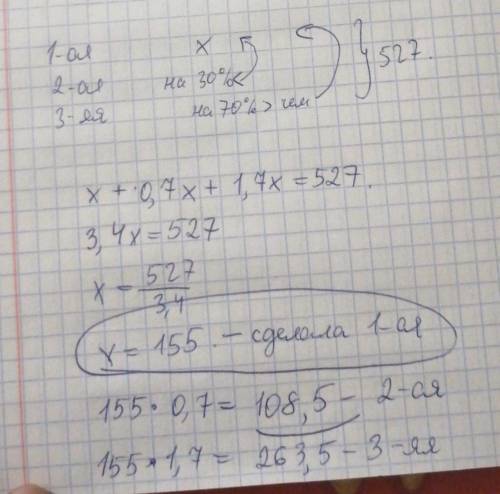 1-ая х
2-ая на 30%<
3-яя на 70%> чем } 527.
х + 0,7х + 1,7х = 527.
3,4х = 527
х = 527/3,4
х = 155. - сделала 1-ая
155 · 0,7 = 108,5 - 2-ая
155 · 1,7 = 263,5 - 3-яя